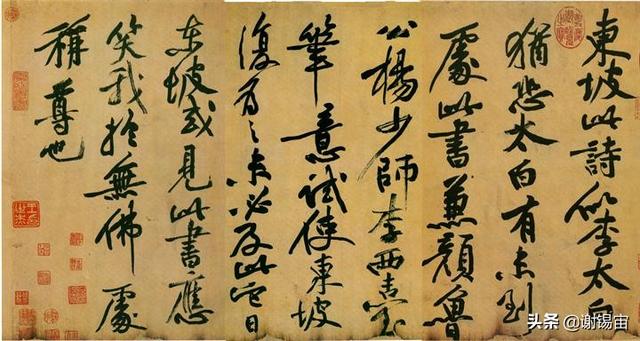 東坡此詩似李太白
猶恐太白有未到
處此書兼顏魯
公楊少師李西臺
筆意試使東坡
復為之未必及此它日
東坡或見此書應
笑我於無佛處
稱尊也
头条 @谢锡宙